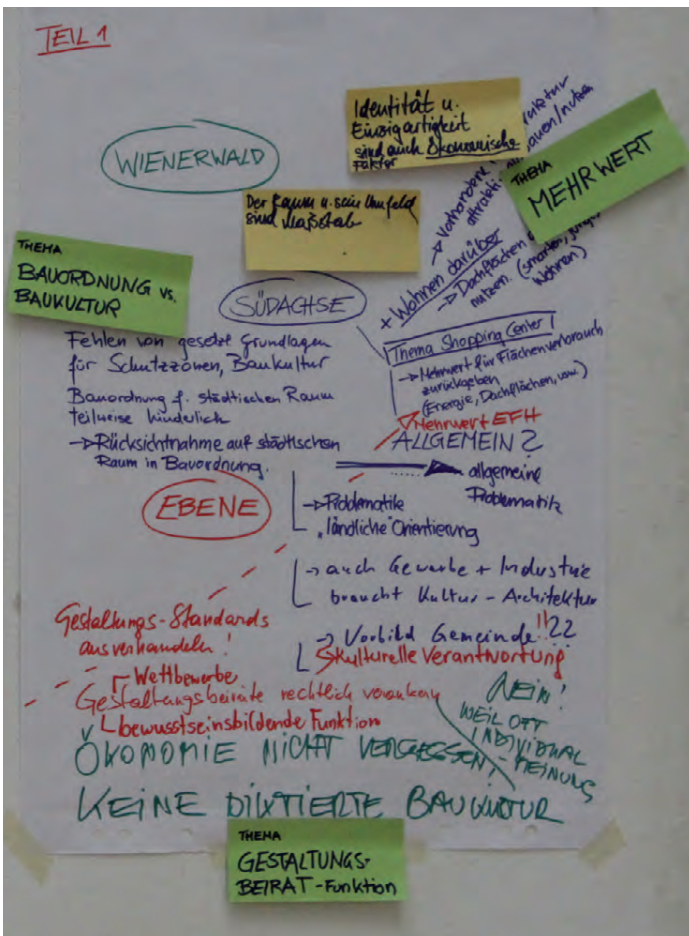 TEIL 1
WIENERWALD
Identität u.
Einzigartigkeit
sind auch Ökonomische
Faktor
THEMA
MEHRWERT
Der Raum u. sein Umfeld
sind Maßstab
THEMA
BAUORDNUNG vs.
BAUKULTUR
SÜDACHSE
-> Vorhandene
attraktiv
bauen/nutzen
+ Wohnen darüber
-> Dachflächen
nutzen. (smartes, junges
Wohnen)
Thema Shopping Center!
-> Mehrwert für Flächenverbrauch
zurückgeben
(Energie, Dachflächen, usw.)
Mehrwert EFH
Fehlen von gesetzl Grundlagen
für Schutzzonen, Baukultur
Bauordnung f. städtischen Raum
teilweise hinderlich
-> Rücksichtnahme auf städtischen
Raum in Bauordnung.
ALLGEMEIN?
allgemeine
Problematik
EBENE
-> Problematik
ländliche Orientierung
-> auch Gewerbe + Industrie
braucht Kultur - Architektur
-> Vorbild Gemeinde!!??
kulturelle Verantwortung
Gestaltungs-Standards
ausverhandeln!
Wettbewerbe
Gestaltungsbeiräte rechtlich verankern
bewusstseinsbildende Funktion
NEIN!
WEIL OFT
INDIVIDUAL
-MEINUNG
ÖKONOMIE NICHT VERGESSEN!
KEINE DIKTIERTE BAUKULTUR
THEMA
GESTALTUNGS-
BEIRAT-Funktion